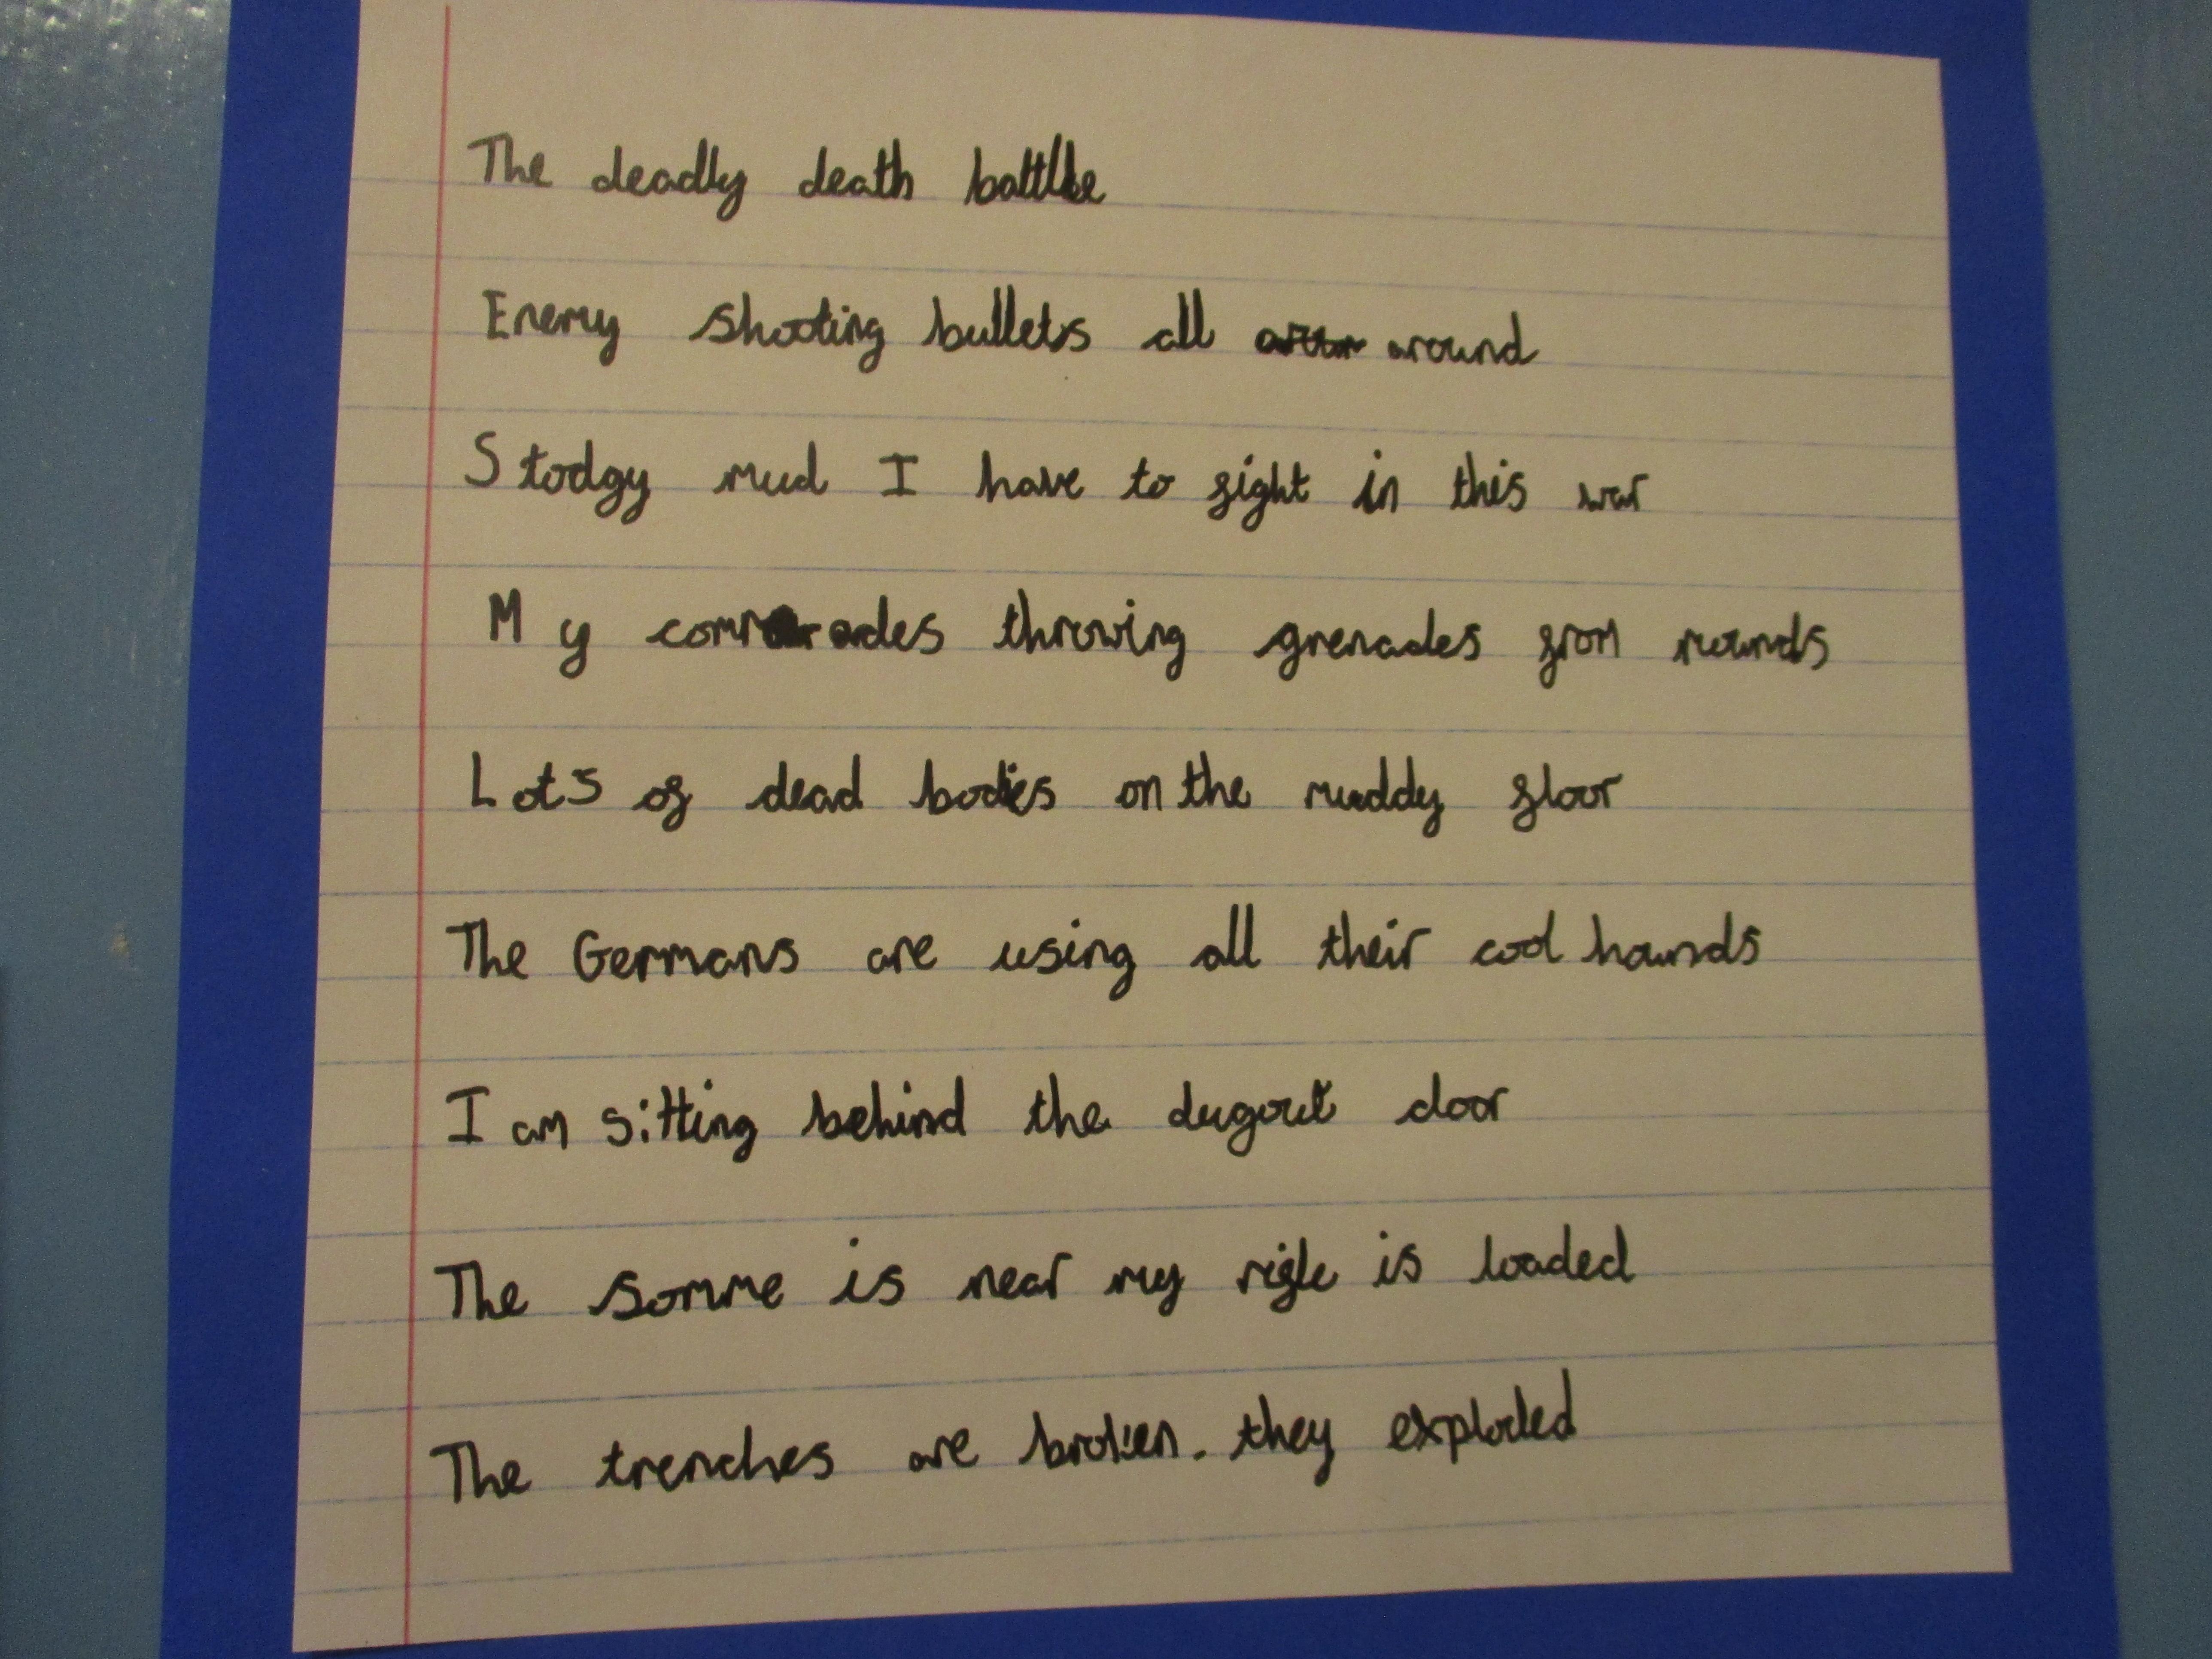 The deadly death battle
Enemy shooting bullets all around
Stodgy mud I have to fight in this war
My comrades throwing grenades from rounds
Lots of dead bodies on the muddy floor
The Germans are using all their cool hounds
I am sitting behind the dugout door
The Somme is near my rifle is loaded
The trenches are broken. they exploded